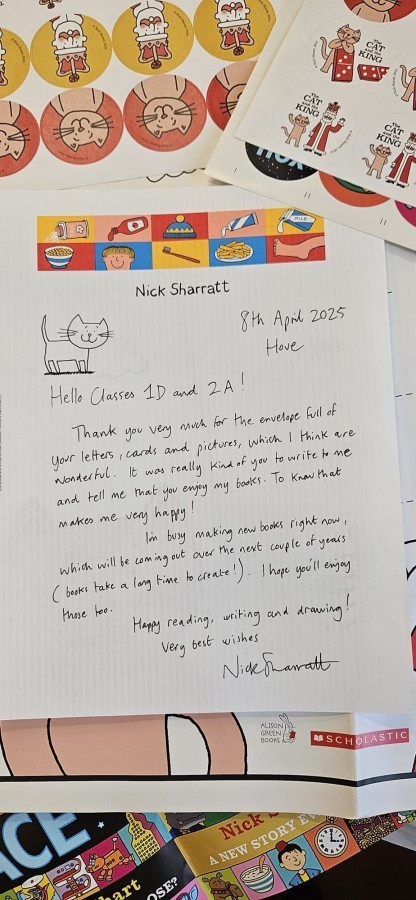 The
CAT
and the
KING
The
CAT
and the
KING
The
CAT
and the
KING
Nick Sharratt
8th April 2025
Hove
Hello Classes 1D and 2A!
Thank you very much for the envelope full of
your letters, cards and pictures, which I think are
wonderful. It was really kind of you to write to me
and tell me that you enjoy my books. To know that
makes me very happy!
I'm busy making new books right now,
which will be coming out over the next couple of years
(books take a long time to create!). I hope you'll enjoy
those too.
Happy reading, writing and drawing!
Very best wishes
Nick Sharratt
ALISON
GREEN
BOOKS
SCHOLASTIC
ACE
Nick
A NEW STORY EV
OSE?